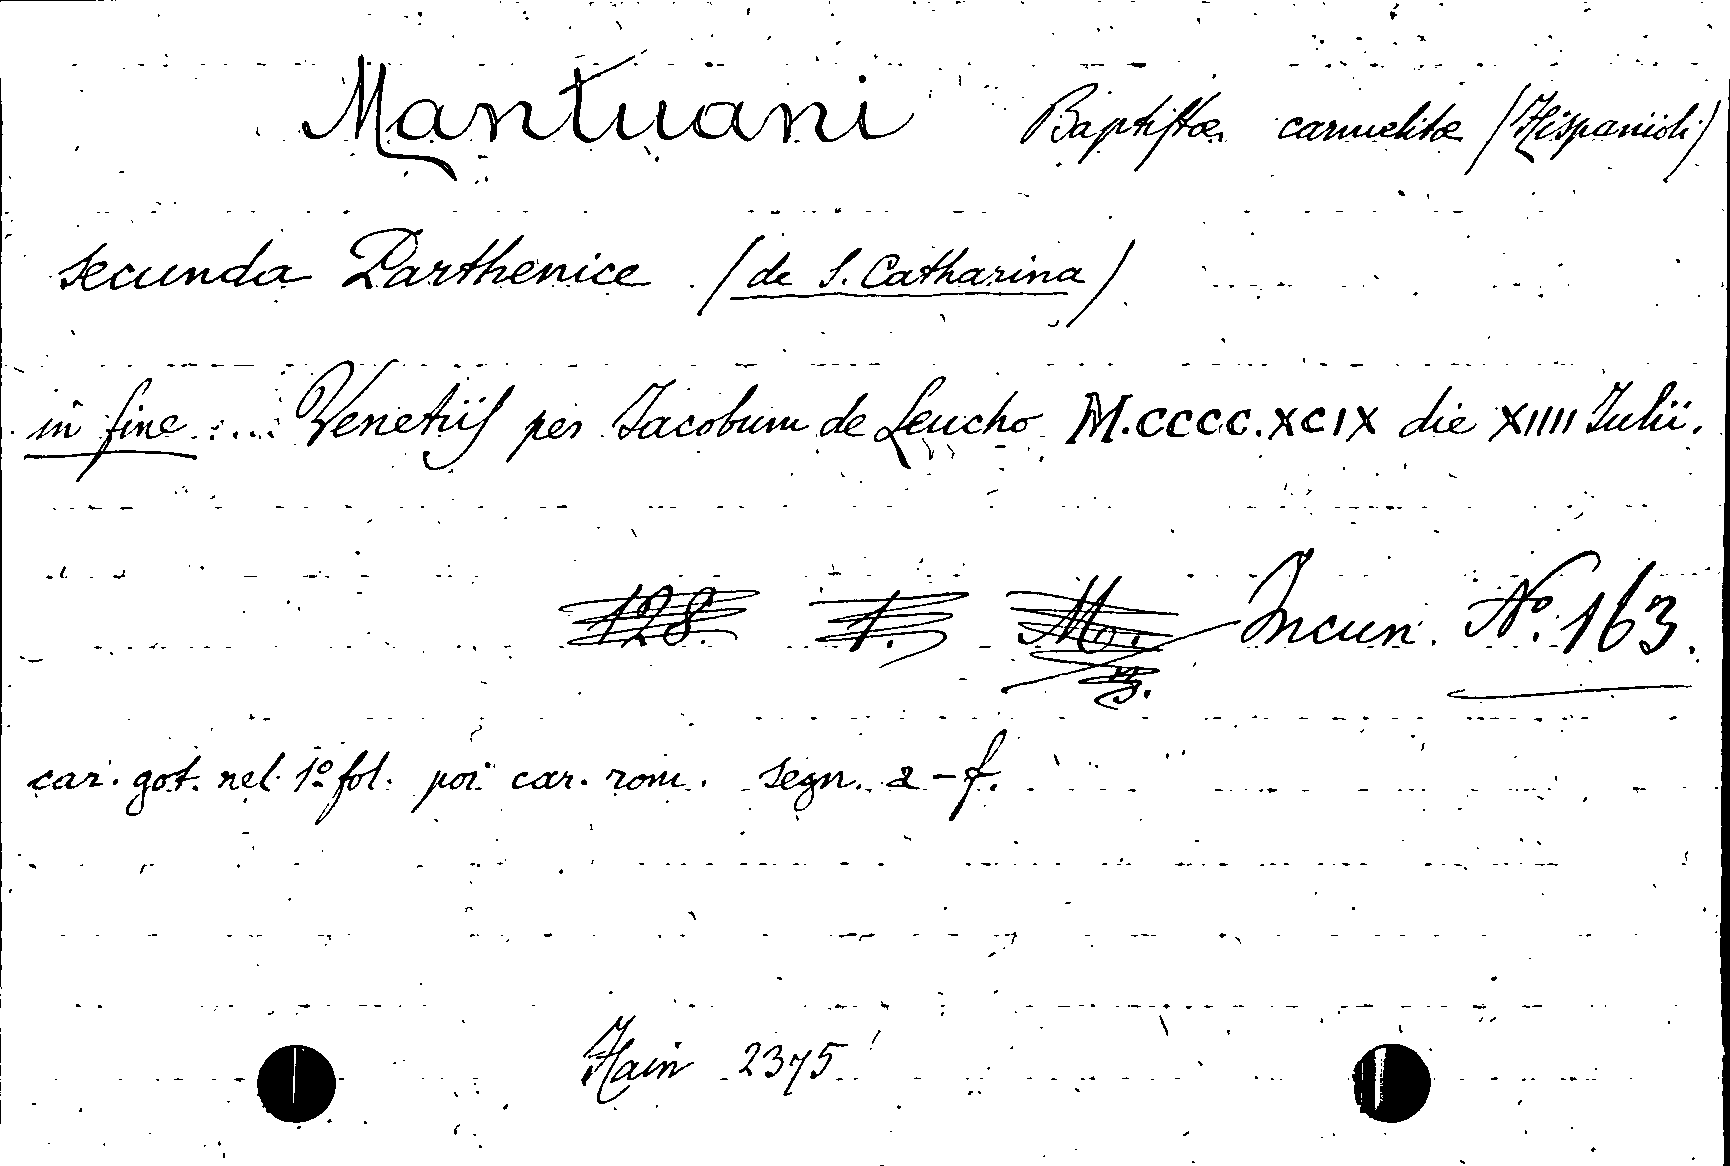 Mantuani Baptistæ carmelitæ (Hispanioli)
secunda Parthenice (de S. Catharina)
in fine .... Venetiis per Jacobum de Leucho M.CCCC.XCIX die XIIII Julii.
128. 1. M. Incun. Nº. 163.
car. got. nel 1º fol. poi car. rom. segn. a-f.
Hain 2375